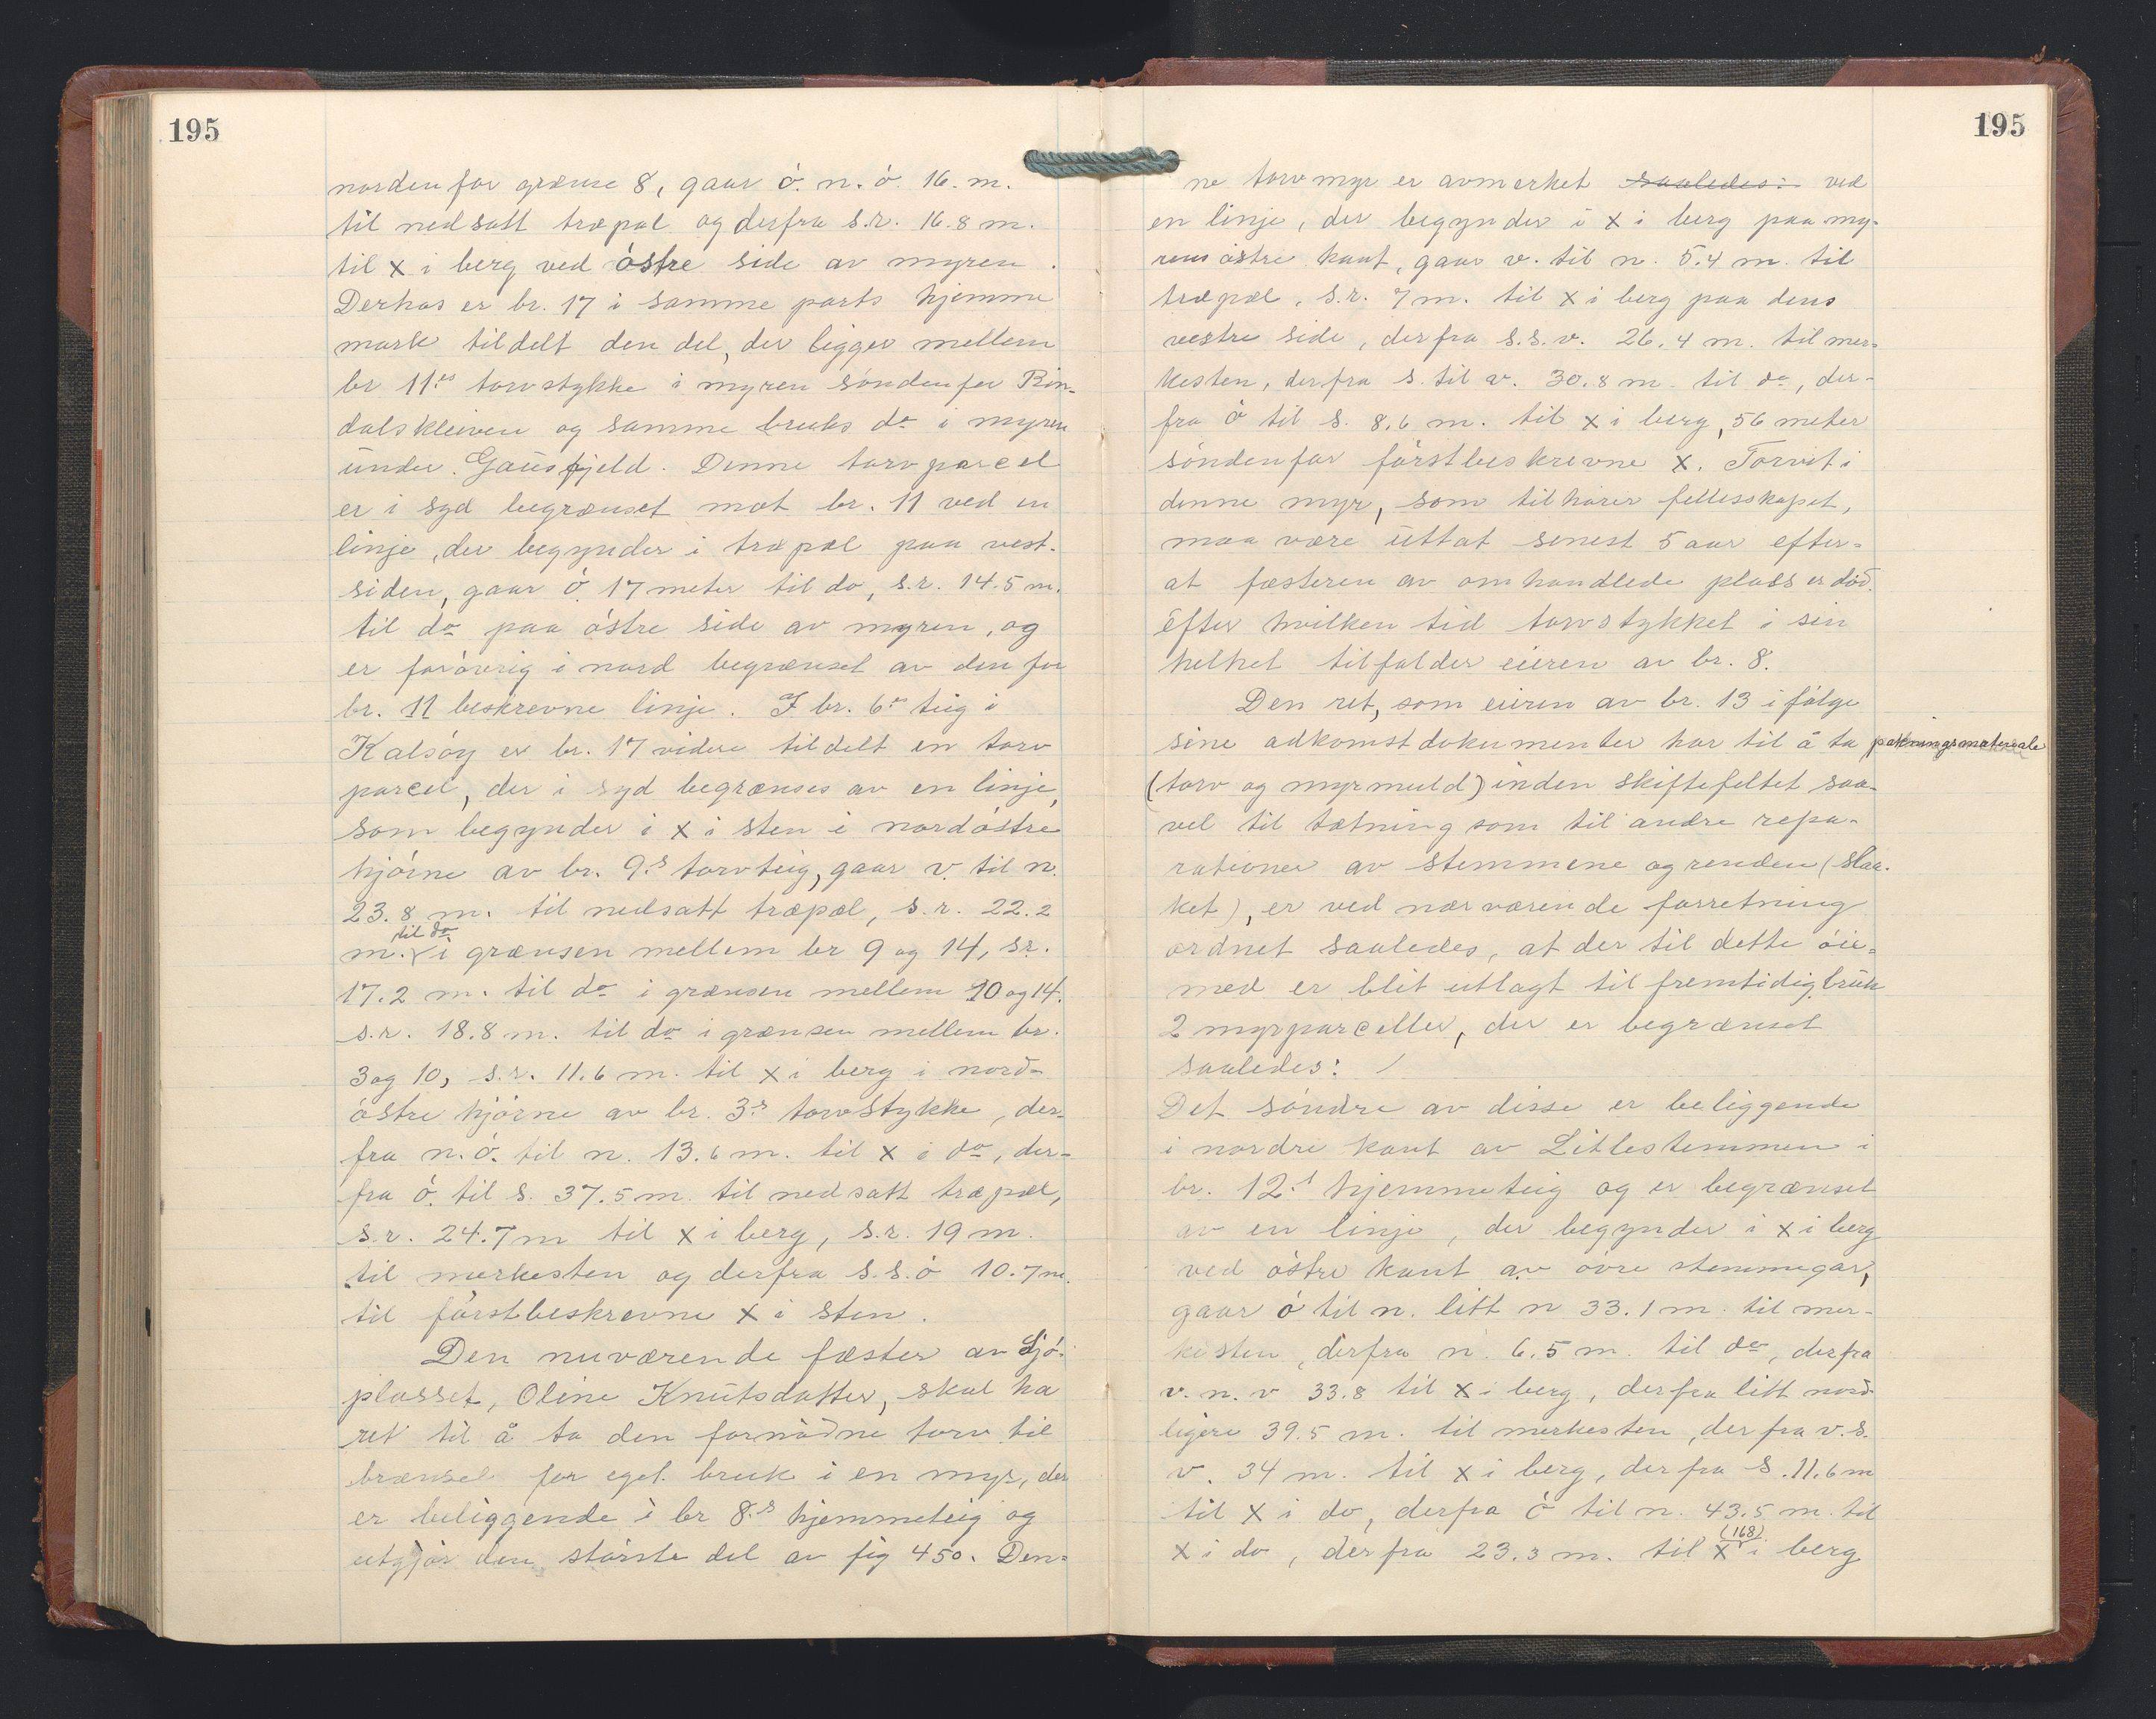 195
nordenfor grænse 8, gaar ó. n. ó. 16. m.
til nedsatt træpæl og derfra s.r. 16.8 m.
til x i berg ved óstre side av myren.
Derhos er br. 17 i samme parts hjemme
mark tildelt den del, der ligger mellem
br 11.es torvstykke i myren sóndenfor Rin-
dalskleiven og samme bruks do i myren
under Gausfjeld. Denne torvparcel
er i syd begrænset mot br. 11 ved en
linje, der begynder i træpæl paa vest-
siden, gaar ó. 17 meter til do, s.r. 14.5 m.
til do paa óstre side av myren, og
er foróvrig i nord begrænset av den for
br. 11 beskrevne linje. I br. 6es teig i
Kalsóy er br. 17 videre tildelt en torv
parcel, der i syd begrænses av en linje,
som begynder i x i sten i nordóstre
hjórne av br. 9.s torvteig, gaar v. til n.
23.8 m. til nedsatt træpæl, s.r. 22.2
til do
m. i grænsen mellem br 9 og 14, sr.
17.2 m. til do i grænsen mellem 10 og 14.
s.r. 18.8 m. til do i grænsen mellem br.
3 og 10, s.r. 11.6 m. til x i berg i nord-
óstre hjórne av br. 3.s torvstykke, der-
fra n.ó. til n. 13.6 m. til x i do, der-
fra ó. til s. 37.5 m. til nedsatt træpæl,
s.r. 24.7 m til x i berg, s.r. 19 m.
til merkesten og derfra s.s.ó 10.7 m.
til fórstbeskrevne x i sten.
Den nuværende fæster av Sjó-
plasset, Oline Knutsdatter, skal ha
ret til å ta den fornódne torv til
brænsel for eget bruk i en myr, der
er beliggende i br 8.s hjemmeteig og
utgjór den stórste del av fig 450. Den-
195
ne torvmyr er avmerket saaledes: ved
en linje, der begynder i x i berg paa my-
rens óstre kant, gaar v. til n. 5.4 m. til
træpæl, s.r. 7 m. til x i berg paa dens
vestre side, derfra s.s.v. 26.4 m. til mer-
kesten, derfra s. til v. 30.8 m. til do, der-
fra ó til s. 8.6 m. til x i berg, 56 meter
sóndenfor fórstbeskrevne x. Torvet i
denne myr, som tilhórer fellesskapet,
maa være uttat senest 5 aar efter-
at fæsteren av omhandlede plass er dód.
efter hvilken tid torvstykket i sin
helhet tilfalder eieren av br. 8.
Den ret, som eieren av br. 13 ifólge
sine adkomstdokumenter har til å ta pakningsmateriale
(torv og myrmuld) inden skiftefeltet saa-
vel til tætning som til andre repa-
rationer av stemmene og renden (slaa-
ket), er ved nærværende forretning
ordnet saaledes, at der til dette óie-
med er blit utlagt til fremtidig bruk
2 myrparceller, der er begrænset
saaledes: /
Det sóndre av disse er beliggende
i nordre kant av Litlestemmen i
br. 12.s hjemmeteig og er begrænset
av en linje, der begynder i x i berg
ved óstre kant av óvre stemmegar,
gaar ó til n. litt n 33.1 m. til mer-
kesten, derfra n. 6.5 m. til do, derfra
v. n. v 33.8 til x i berg, derfra litt nord-
ligere 39.5 m. til merkesten, derfra v.s.
v. 34 m. til x i berg, derfra s. 11.6 m
til x i do, derfra ó til n. 43.5 m. til
(168)
x i do, derfra 23.3 m. til x i berg